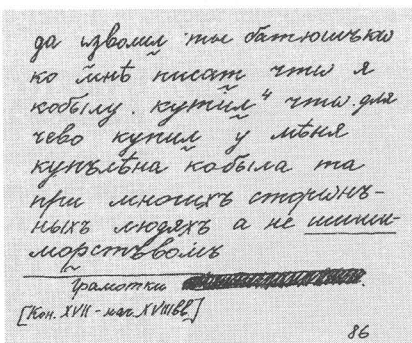 да изволил ты батюшъкѡ
ко мнѣ писат чтѡ я
кобылу . купил ч чтѡ . для
чево купил у мѣня
купълѣна кобыла та
при многихъ сторѡнъ-
ныхъ людяхъ а не шиши-
морстъвомъ
Грамотки
[Кон. XVII - нач. XVIII вв.]
86